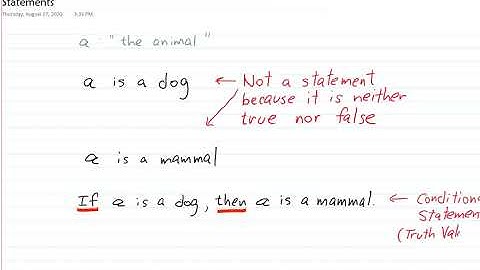 Statements
Thursday, August 27, 2020 3:35 PM
a : "the animal"
a is a dog
← Not a statement
because it is neither
true nor false
a is a mammal
If a is a dog, then a is a mammal.
← Conditiona
Statemen
(Truth Val